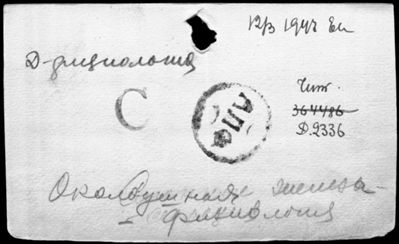 12/3 1947 Ен
Д-физиология
Чит.
364486
Д.2336
С
АПФ
Околоушная железа -
физиология